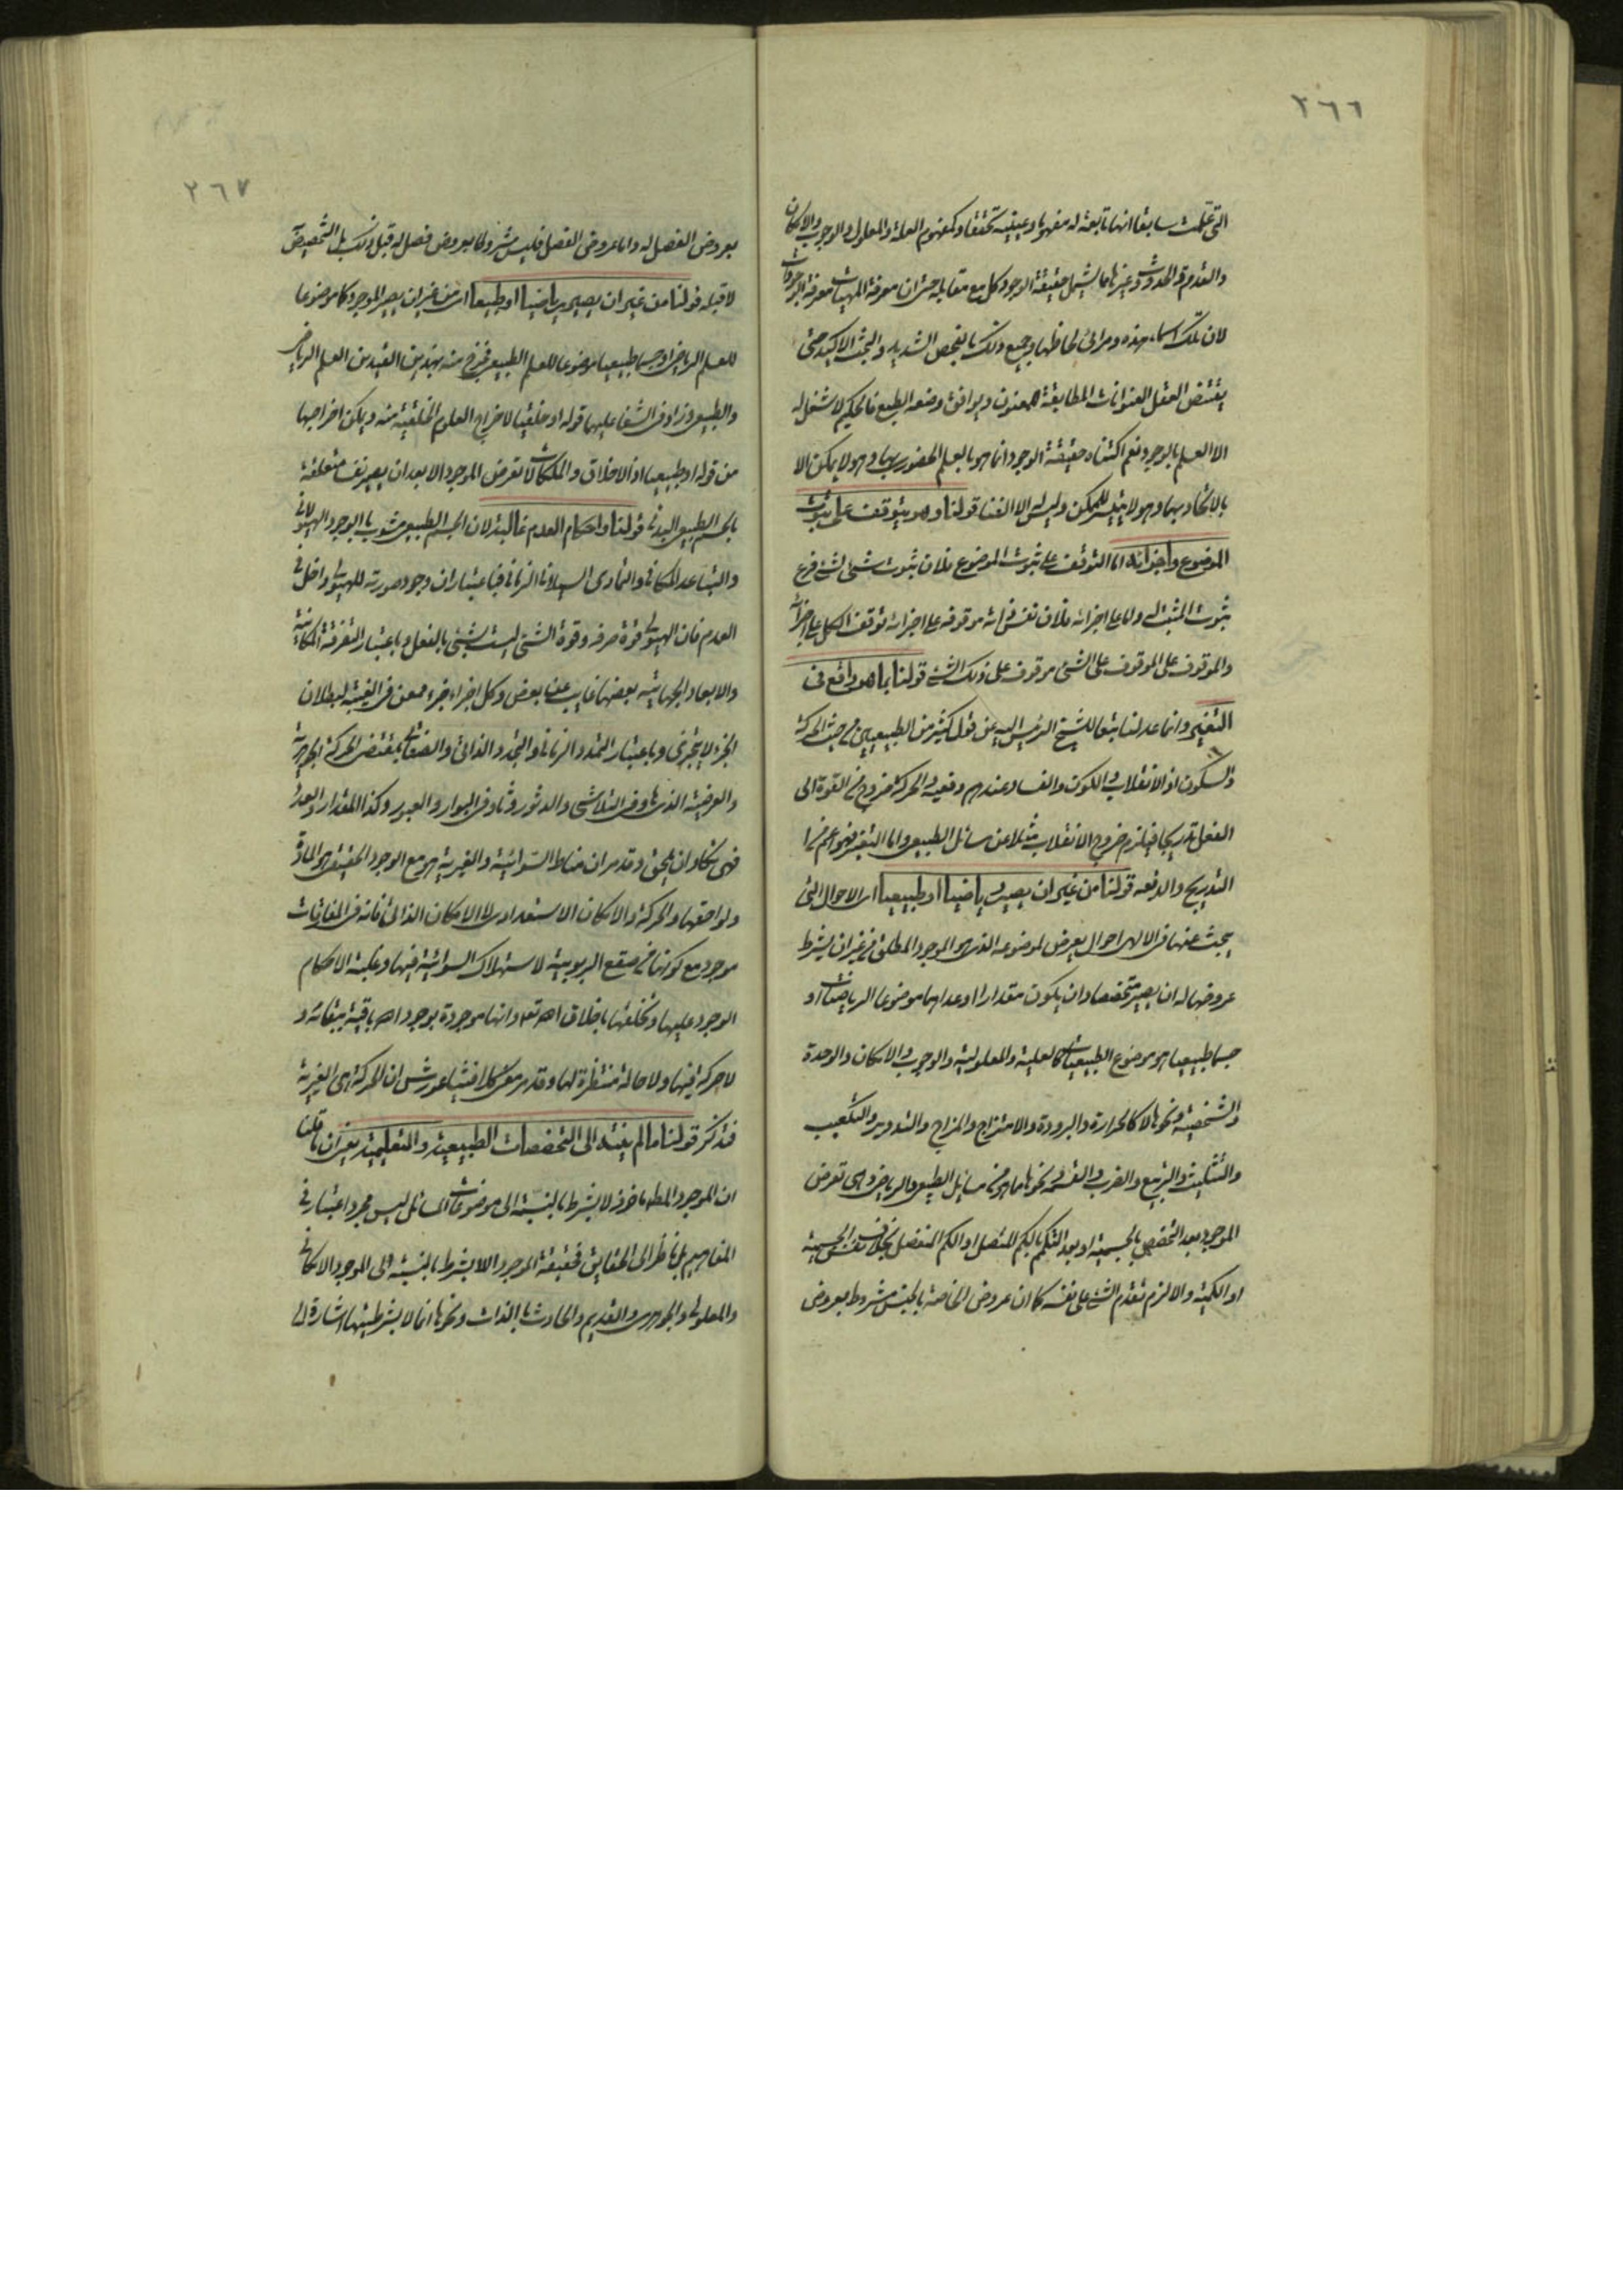 ٢٦٦
التی علمت سابقا انها تابعة له مفهوما وعینیة تحققا وکمفهوم العلة والمعلول والوجوب والامکان
والقدم والحدوث وغیرها مما یشمل حقیقة الوجود کل مع مقابله حتی ان معرفة المهیات معرفة الوجودات
لان تلک اسماء هذه ومرائی لحاظها وجمیع ذلک بالفحص الشدید والبحث الاکید حتی
یقتنص العقل العنوانات المطابقة للمعنون ویوافق وضعه الطبع فالحکیم لا شغل له
الا العلم بالوجود نعم اکتناه حقیقة الوجود انما هو بالعلم الحضوری بها وهو لا یمکن الا
بالاتحاد بها وهو لا یتیسر للممکن ولیس الا الفنا قولنا وهو یتوقف علی ثبوت
الموضوع واجزائه اما التوقف علی ثبوت الموضوع فلان ثبوت شئ لشئ فرع
ثبوت المثبت له واما علی اجزائه فلان نفس ذاته موقوفه علی اجزائه توقف الکل علی اجزائه
والموقوف علی الموقوف علی الشئ موقوف علی ذلک الشئ قولنا بما هو واقع فی
التغیر وانما عدلنا تبعا للشیخ الرئیس الیه عن قول کثیر من الطبیعیین من حیث الحرکة
والسکون اذ الانقلاب والکون والفساد عندهم دفعیه والحرکة خروج من القوة الی
الفعل تدریجا فیلزم خروج الانقلاب مثلا عن مسائل الطبیعی واما التغیر فهو اعم من
التدریج والدفعه قولنا من غیر ان یصیر ریاضیا او طبیعیا ای الاحوال التی
یبحث عنها فی الالهی احوال یعرض لموضوعه الذی هو الموجود المطلق من غیر ان یشرط
عروضها له ان یصیر متخصصا وان یکون مقدارا او عدا هما موضوعا الریاضیات او
جسما طبیعیا هو موضوع الطبیعیات کالعلیة والمعلولیة والوجوب والامکان والوحدة
والشخصیة ونحوها لا کالحرارة والبرودة والامتزاج والمزاج والتدویر والتکعیب
والتثلیث والتربیع والضرب والقسمة ونحوها مما هی من مسایل الطبیعی والریاضی وهی تعرض
الموجود بعد التخصص بالجسمیة او بعد التکمم بالکم المتصل او الکم المنفصل بخلاف نفس الجسمیة
او الکمیة والا لزم تقدم الشئ علی نفسه کما ان عروض الخاصة بالجنس مشروط بعروض
٢٦٧
بعروض الفصل له واما عروض الفصل فلیس مشروطا بعروض فصل له قبل ذلک بل التخصیص
لا قبله قولنا من غیر ان یصیر ریاضیا او طبیعیا ای من غیر ان یصیر الموجود کما موضوعا
للعلم الریاضی او جسما طبیعیا موضوعا للعلم الطبیعی فخرج منه بهذین القیدین العلم الریاضی
والطبیعی وزاد فی الشفا علیهما قوله او خلقیا لاخراج العلوم الخلقیة منه ویمکن اخراجها
من قوله او طبیعیا اذ الاخلاق والملکات لا تعرض الموجود الا بعد ان یصیر نفسا متعلقة
بالجسم الطبیعی البدنی قولنا واحکام العدم غالبة لان الجسم الطبیعی مشوب بالوجود الهیولانی
والتباعد المکانی والتمادی السیلانی الزمانی فباعتبار ان وجود صورته للهیولی داخل فی
العدم فان الهیولی قوة صرفه وقوة الشئ لیست بشئ بالفعل وباعتبار التفرقة المکانیة
والابعاد الجهاتیه بعضها غایب عن بعض وکل اجزاء جزء ممعن فی الغیبة لبطلان
الجزء لا یتجزی وباعتبار التمدد الزمانی والتجدد الذاتی والصفاتی بمقتضی الحرکة الجوهریة
والعرضیة الذی هو فی التلاشی والدثور وثاو فی البوار والعبور وکذا المقدار والعدد
فهی تکاد ان یمحق وقد مر ان مناط السوائیة والغیریة هو مع الوجود الحقیقی هو المادة
ولواحقها والحرکة والامکان الاستعدادی لا الامکان الذاتی فانه فی المفارقات
موجود مع کونها من صقع الربوبیة لاستهلاک السوائیة فیها وغلبة الاحکام
الوجود علیها وتخلقها باخلاق الله تعه وانها موجودة بوجود الله باقیة ببقائه و
لا حرکة فیها ولا حالة منتظرة لها وقد مر معنی کلام فیثاغورش ان الحرکة هی الغیریة
فتذکر قولنا ما لم ینته الی التخصصات الطبیعیة والتعلیمیة یعنی ان ما قلنا
ان الموجود المطه ماخوذ لا بشرط بالنسبة الی موضوعات المسائل لیس مجرد اعتبار فی
المفاهیم بل ناظر الی الحقایق فحقیقة الموجود اللا بشرط بالنسبه الی الموجود الامکانی
والمعلولی والجوهری والقدیم والحادث بالذات ونحوها انما لا بشرطیتها اشارة الی